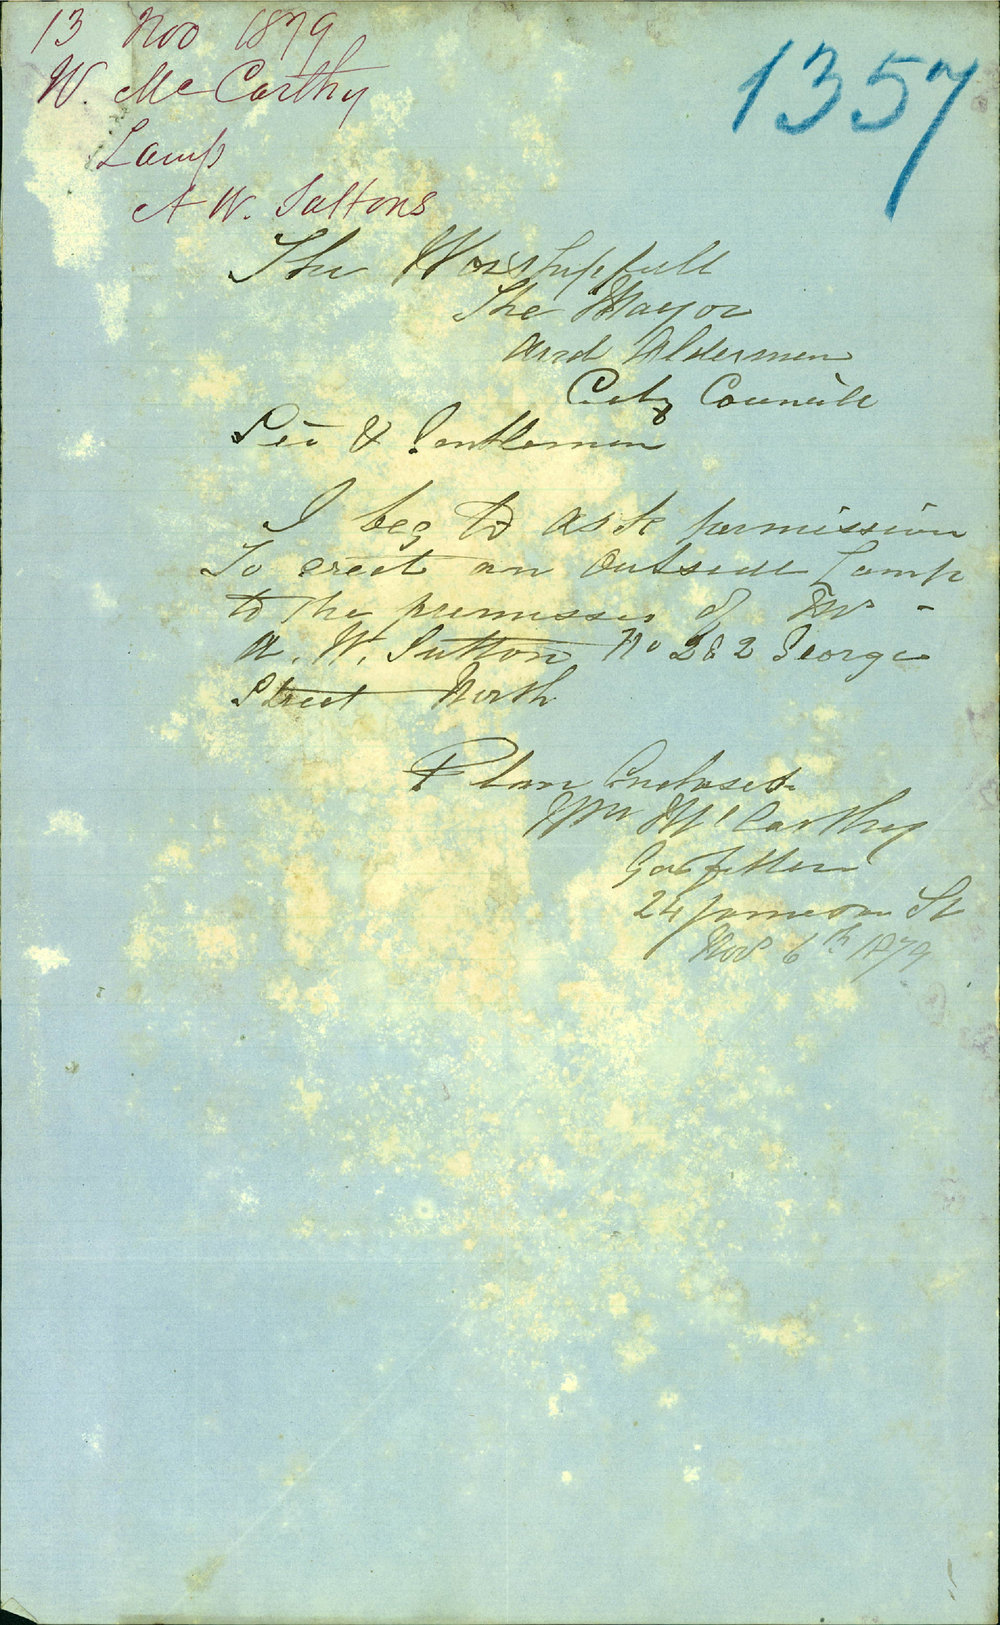 13 Nov 1879
W. McCarthy
Lamp
A W. Suttons
1357
The Worshipfull
The Mayor
And Aldermen
City Councill
Sir & Gentlemen
I beg to ask permission
To erect an outside Lamp
to the premisses of Mr -
A. W. Sutton No 282 George
Street North
Plan Enclosed
Wm McCarthy
Gasfitter
24 Jameson St
Nov 6th 1879